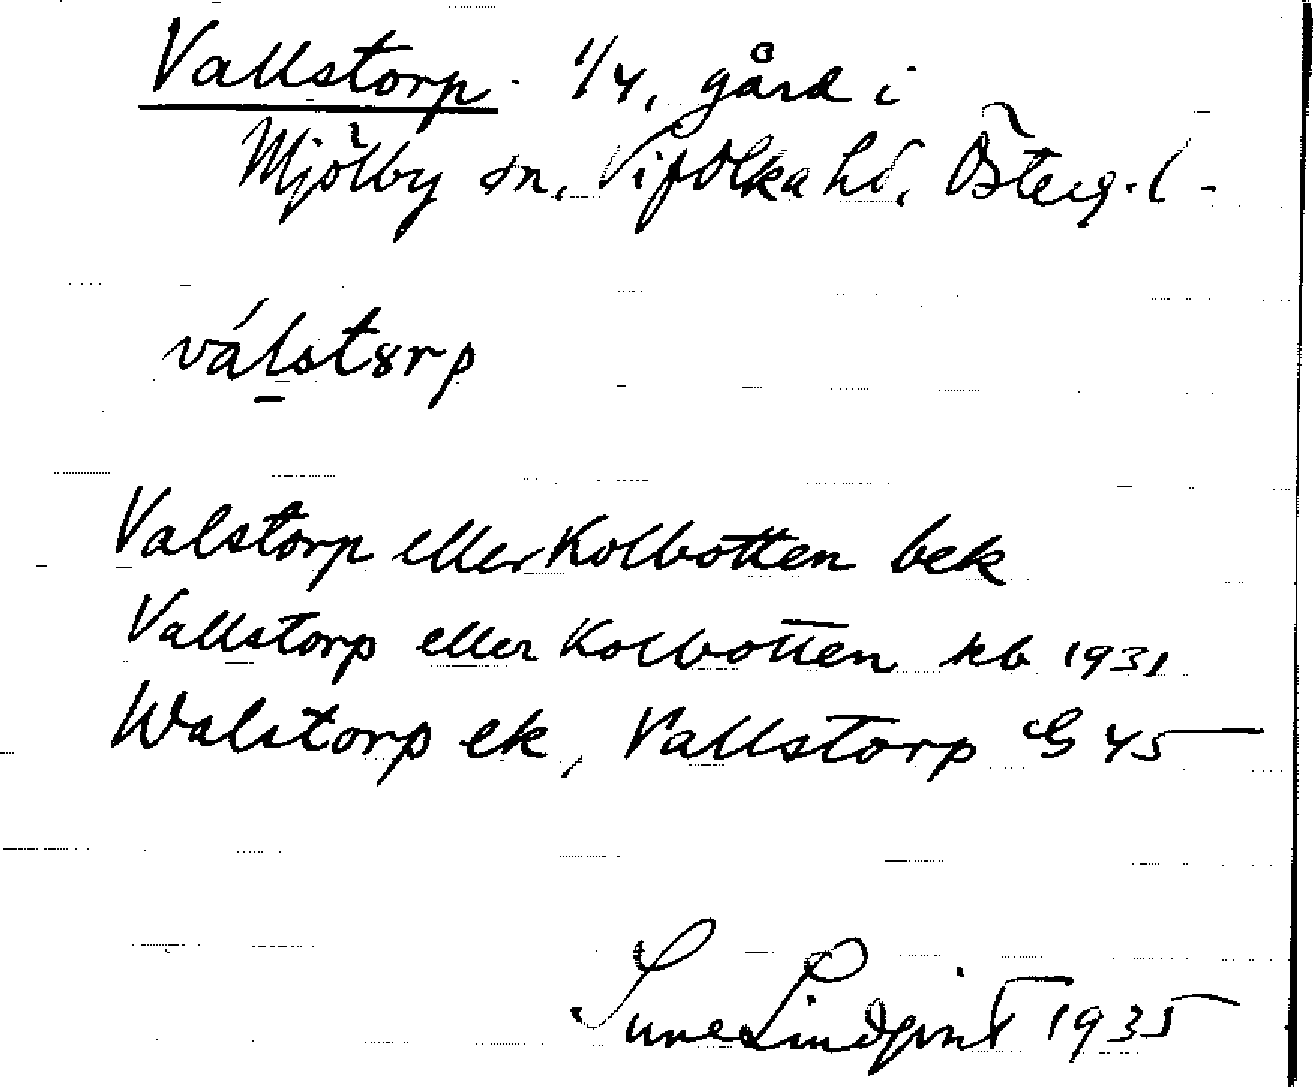 Vallstorp. 1/4, gård i
Mjölby sn, Vifolka hd, Österg. l.
válstȣrp
Valstorp eller Kolbotten bek
Vallstorp eller Kolbotten kb 1931
Walstorp ek, Vallstorp G 45
Sune Lindqvist 1935